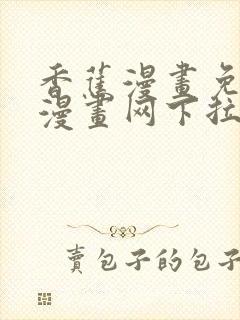 香蕉漫畫免
漫畫网下拉
賣包子的包子